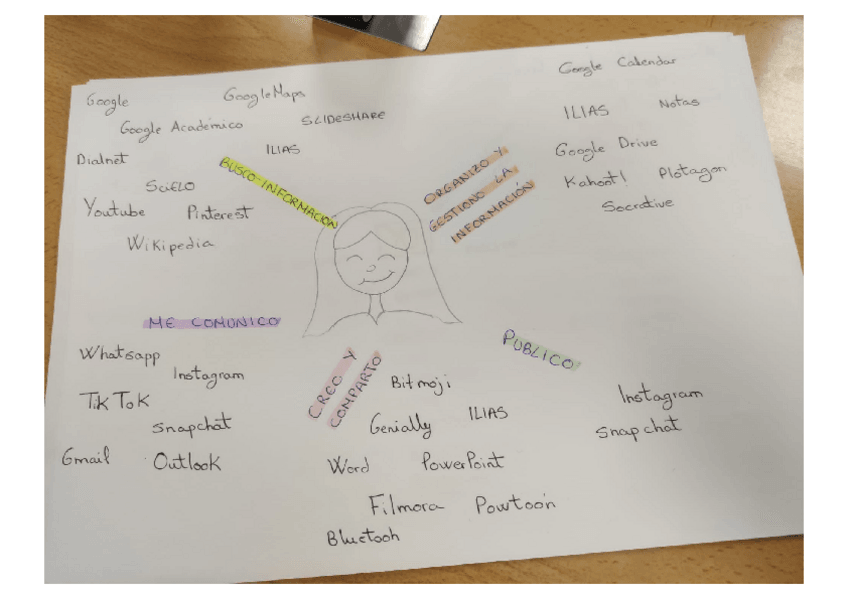 Google
GoogleMaps
Google Académico
SLIDESHARE
Dialnet
ILIAS
SciELO
Youtube
Pinterest
Wikipedia
BUSCO INFORMACIÓN
Google Calendar
ILIAS
Notas
Google Drive
Kahoot!
Plotagon
Socrative
ORGANIZO Y
GESTIONO LA
INFORMACIÓN
ME COMUNICO
Whatsapp
Instagram
TikTok
Snapchat
Gmail
Outlook
CREO Y
COMPARTO
Bitmoji
Genially
ILIAS
Word
PowerPoint
Filmora
Powtoon
Bluetooh
PUBLICO
Instagram
Snapchat